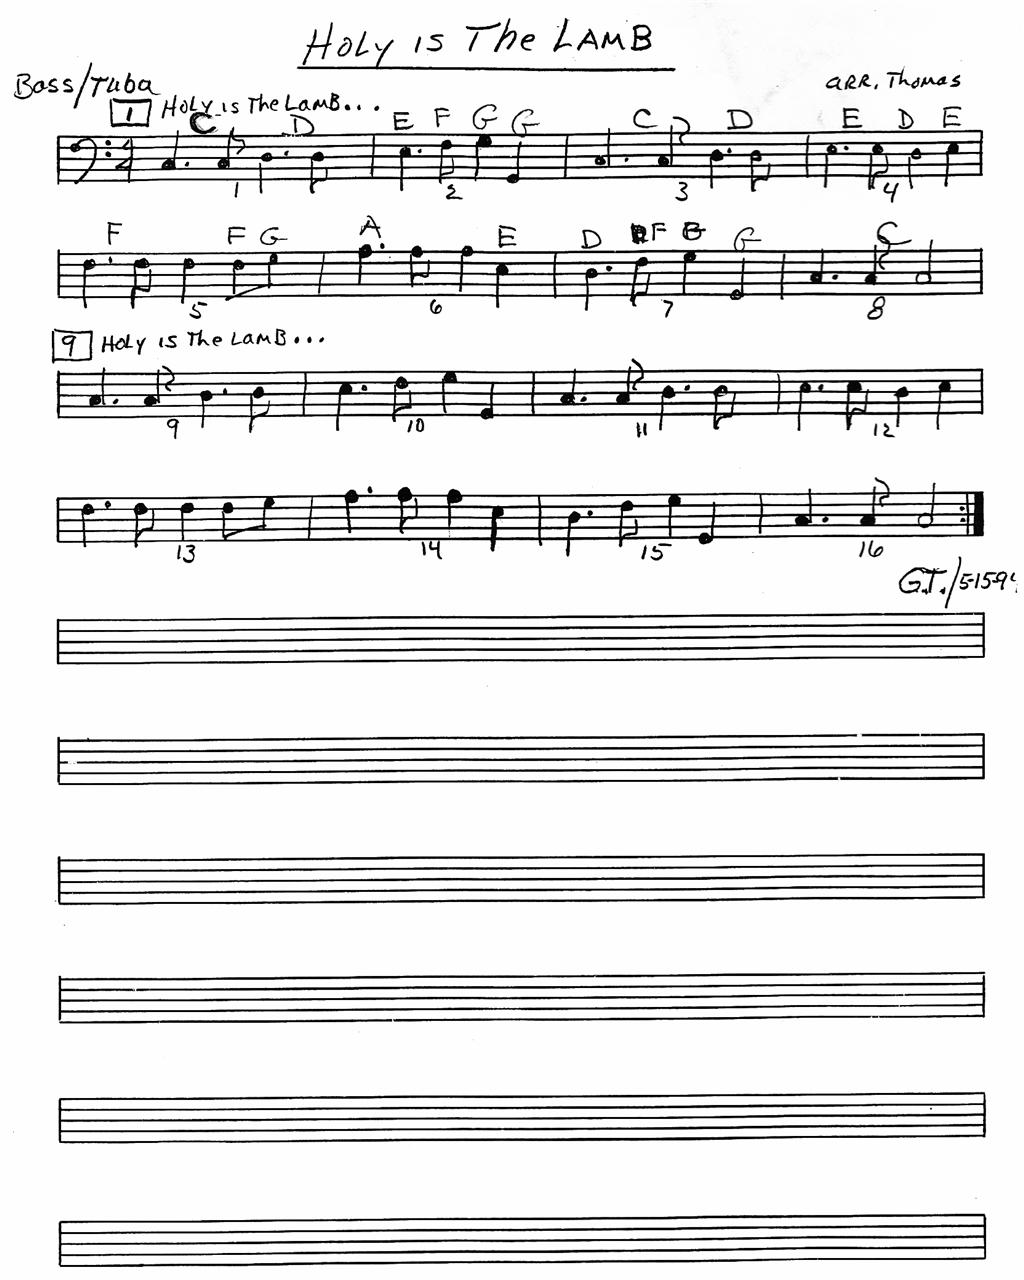 HOLY IS The LAMB
Bass/Tuba
ARR. Thomas
1 HOLY is The LAMB...
C D E F G G C D E D E
1 2 3 4
F F G A E D F G G C
5 6 7 8
9 HOLY is The LAMB...
9 10 11 12
13 14 15 16
G.T./5-15-94